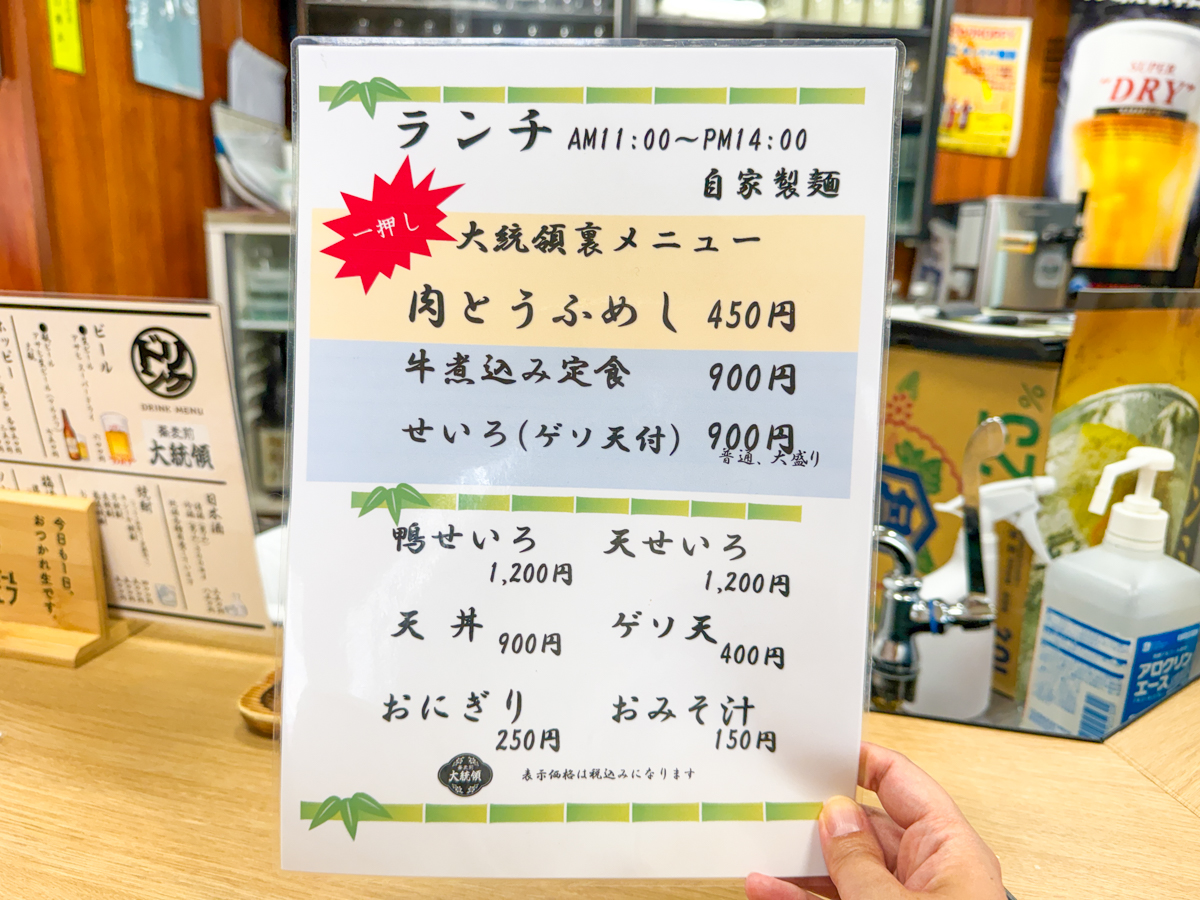 ランチ AM11:00～PM14:00
自家製麺
一押し
大統領裏メニュー
肉とうふめし 450円
牛煮込み定食 900円
せいろ(ゲソ天付) 900円
普通、大盛り
鴨せいろ 1,200円
天せいろ 1,200円
天丼 900円
ゲソ天 400円
おにぎり 250円
おみそ汁 150円
大統領
表示価格は税込みになります
ドリンク
DRINK MENU
大統領
ビール
日本酒
焼酎
今日も1日、
おつかれ生です。
SUPER
"DRY"
アロクリン
エース